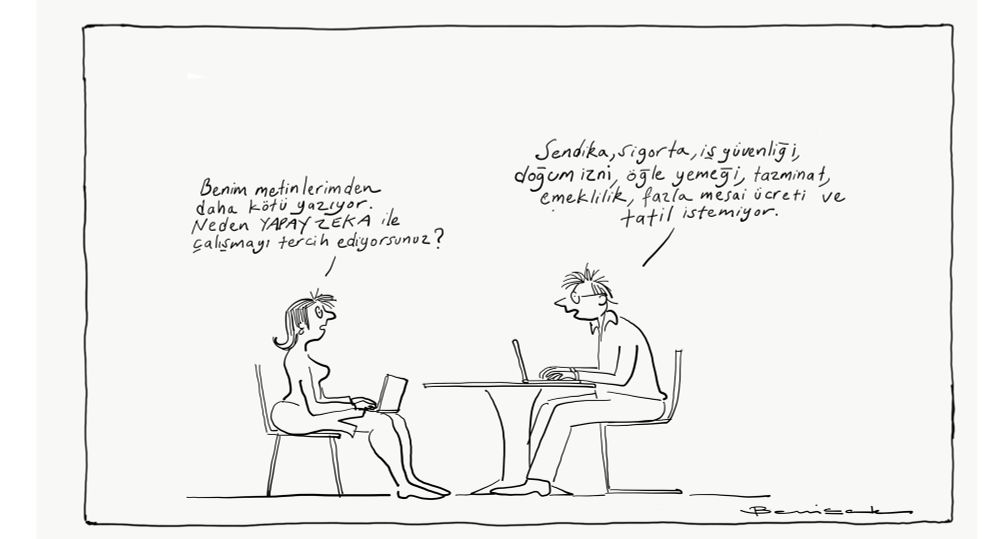 Benim metinlerimden
daha kötü yazıyor.
Neden YAPAY ZEKA ile
çalışmayı tercih ediyorsunuz?
Sendika, sigorta, iş güvenliği,
doğum izni, öğle yemeği, tazminat,
emeklilik, fazla mesai ücreti ve
tatil istemiyor.